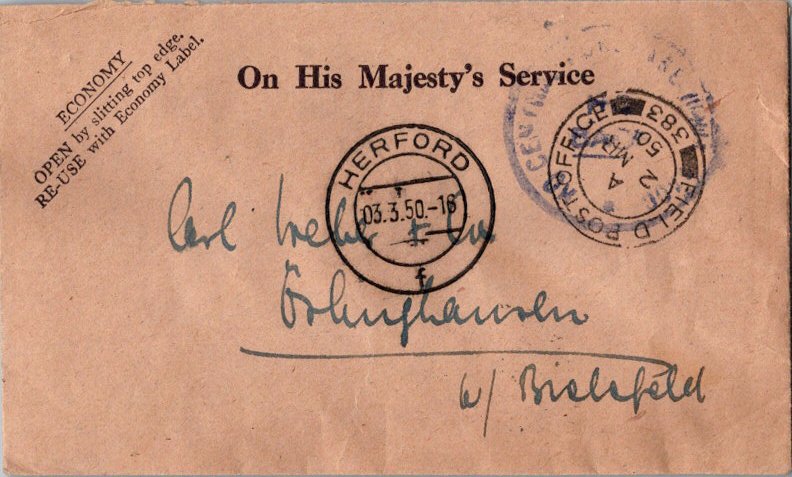 ECONOMY
OPEN by slitting top edge.
RE-USE with Economy Label.
On His Majesty's Service
FIELD POST OFFICE 383
A
2 MR
50
HERFORD
03.3.50.-16
f
Carl
b/ Bielefeld